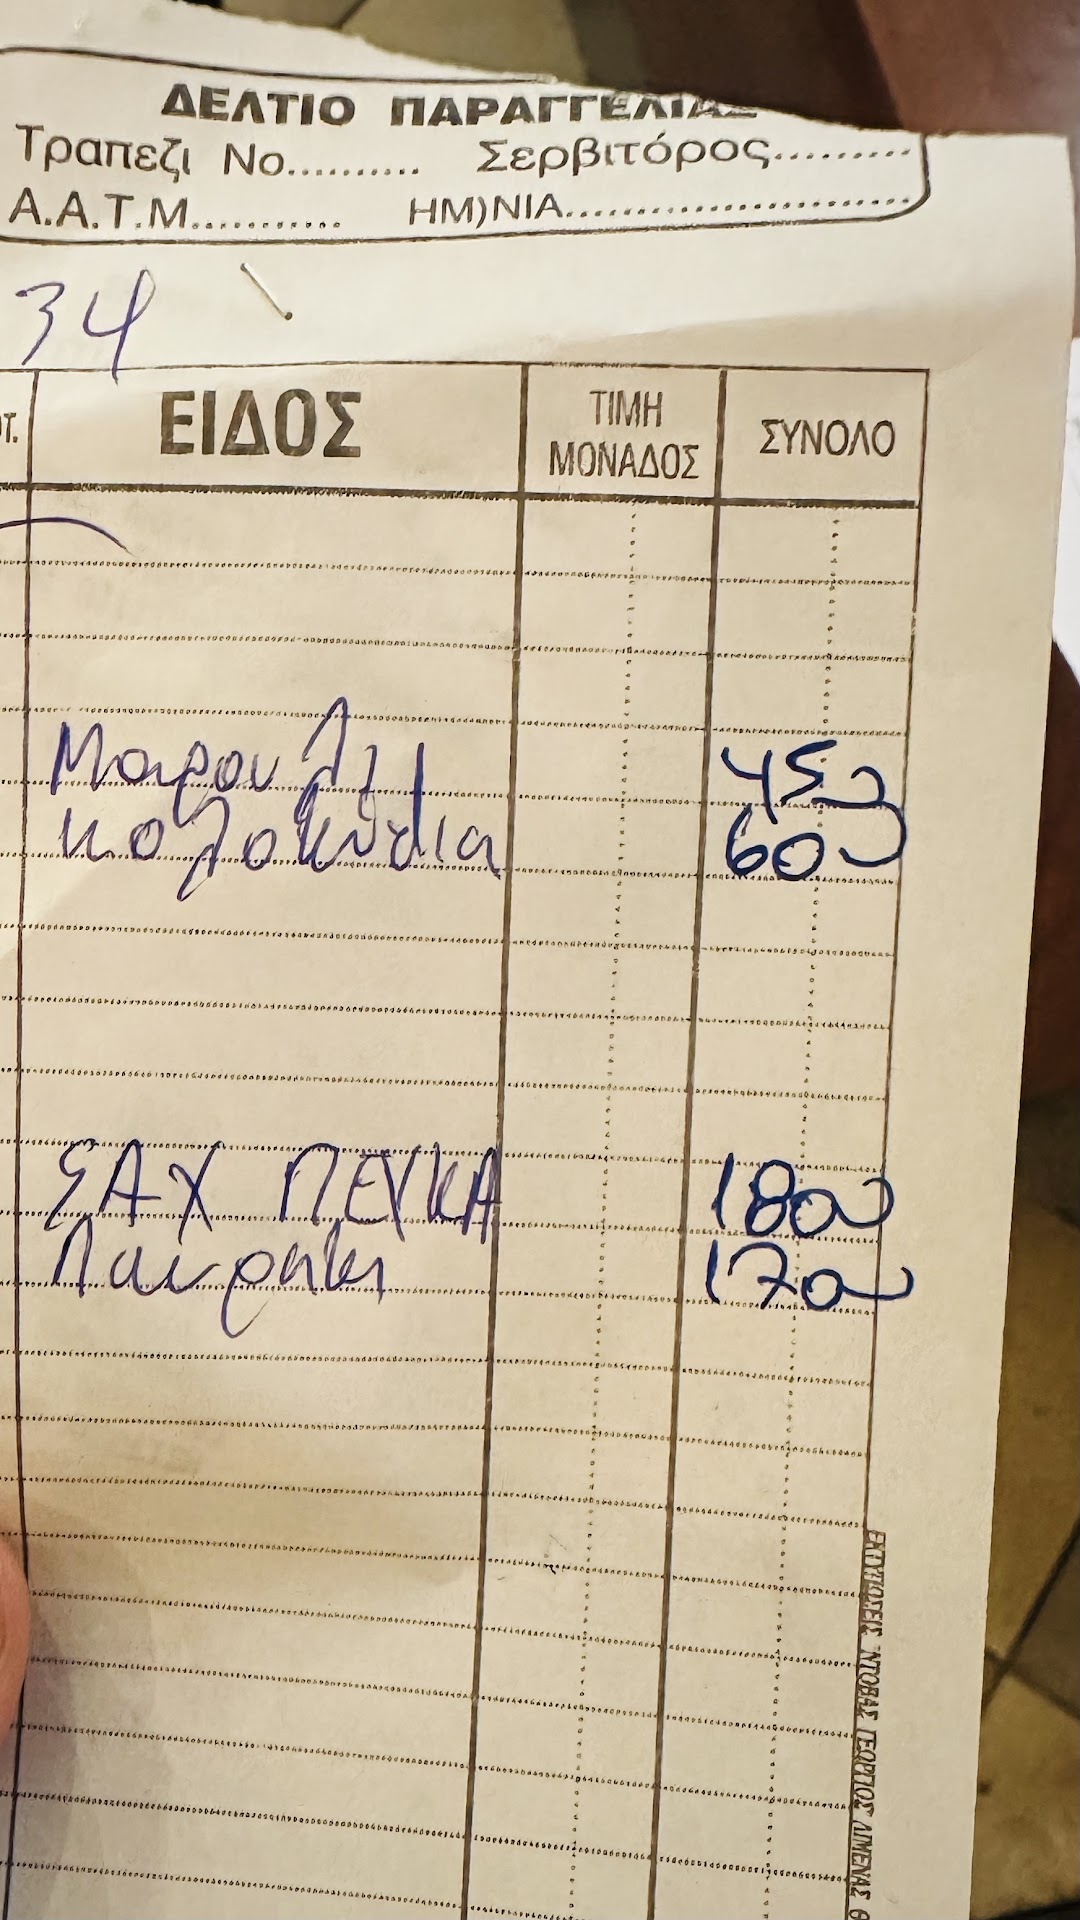 ΔΕΛΤΙΟ ΠΑΡΑΓΓΕΛΙΑΣ
Τραπεζι Νο.......... Σερβιτόρος.........
Α.Α.Τ.Μ........... ΗΜ)ΝΙΑ........................
34
ΕΙΔΟΣ ΤΙΜΗ ΜΟΝΑΔΟΣ ΣΥΝΟΛΟ
Μαρουλι 450
κολοκύθια 600
ΣΑΧ ΠΕΥΚΑ 1800
Λαυρακι 1700
ΕΚΤΥΠΩΣΕΙΣ ΝΤΟΒΑΣ ΓΕΩΡΓΙΟΣ ΛΙΜΕΝΑΣ Θ